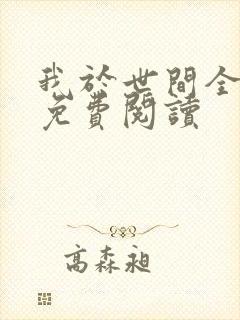 我於世間全
免費閱讀
高森昶